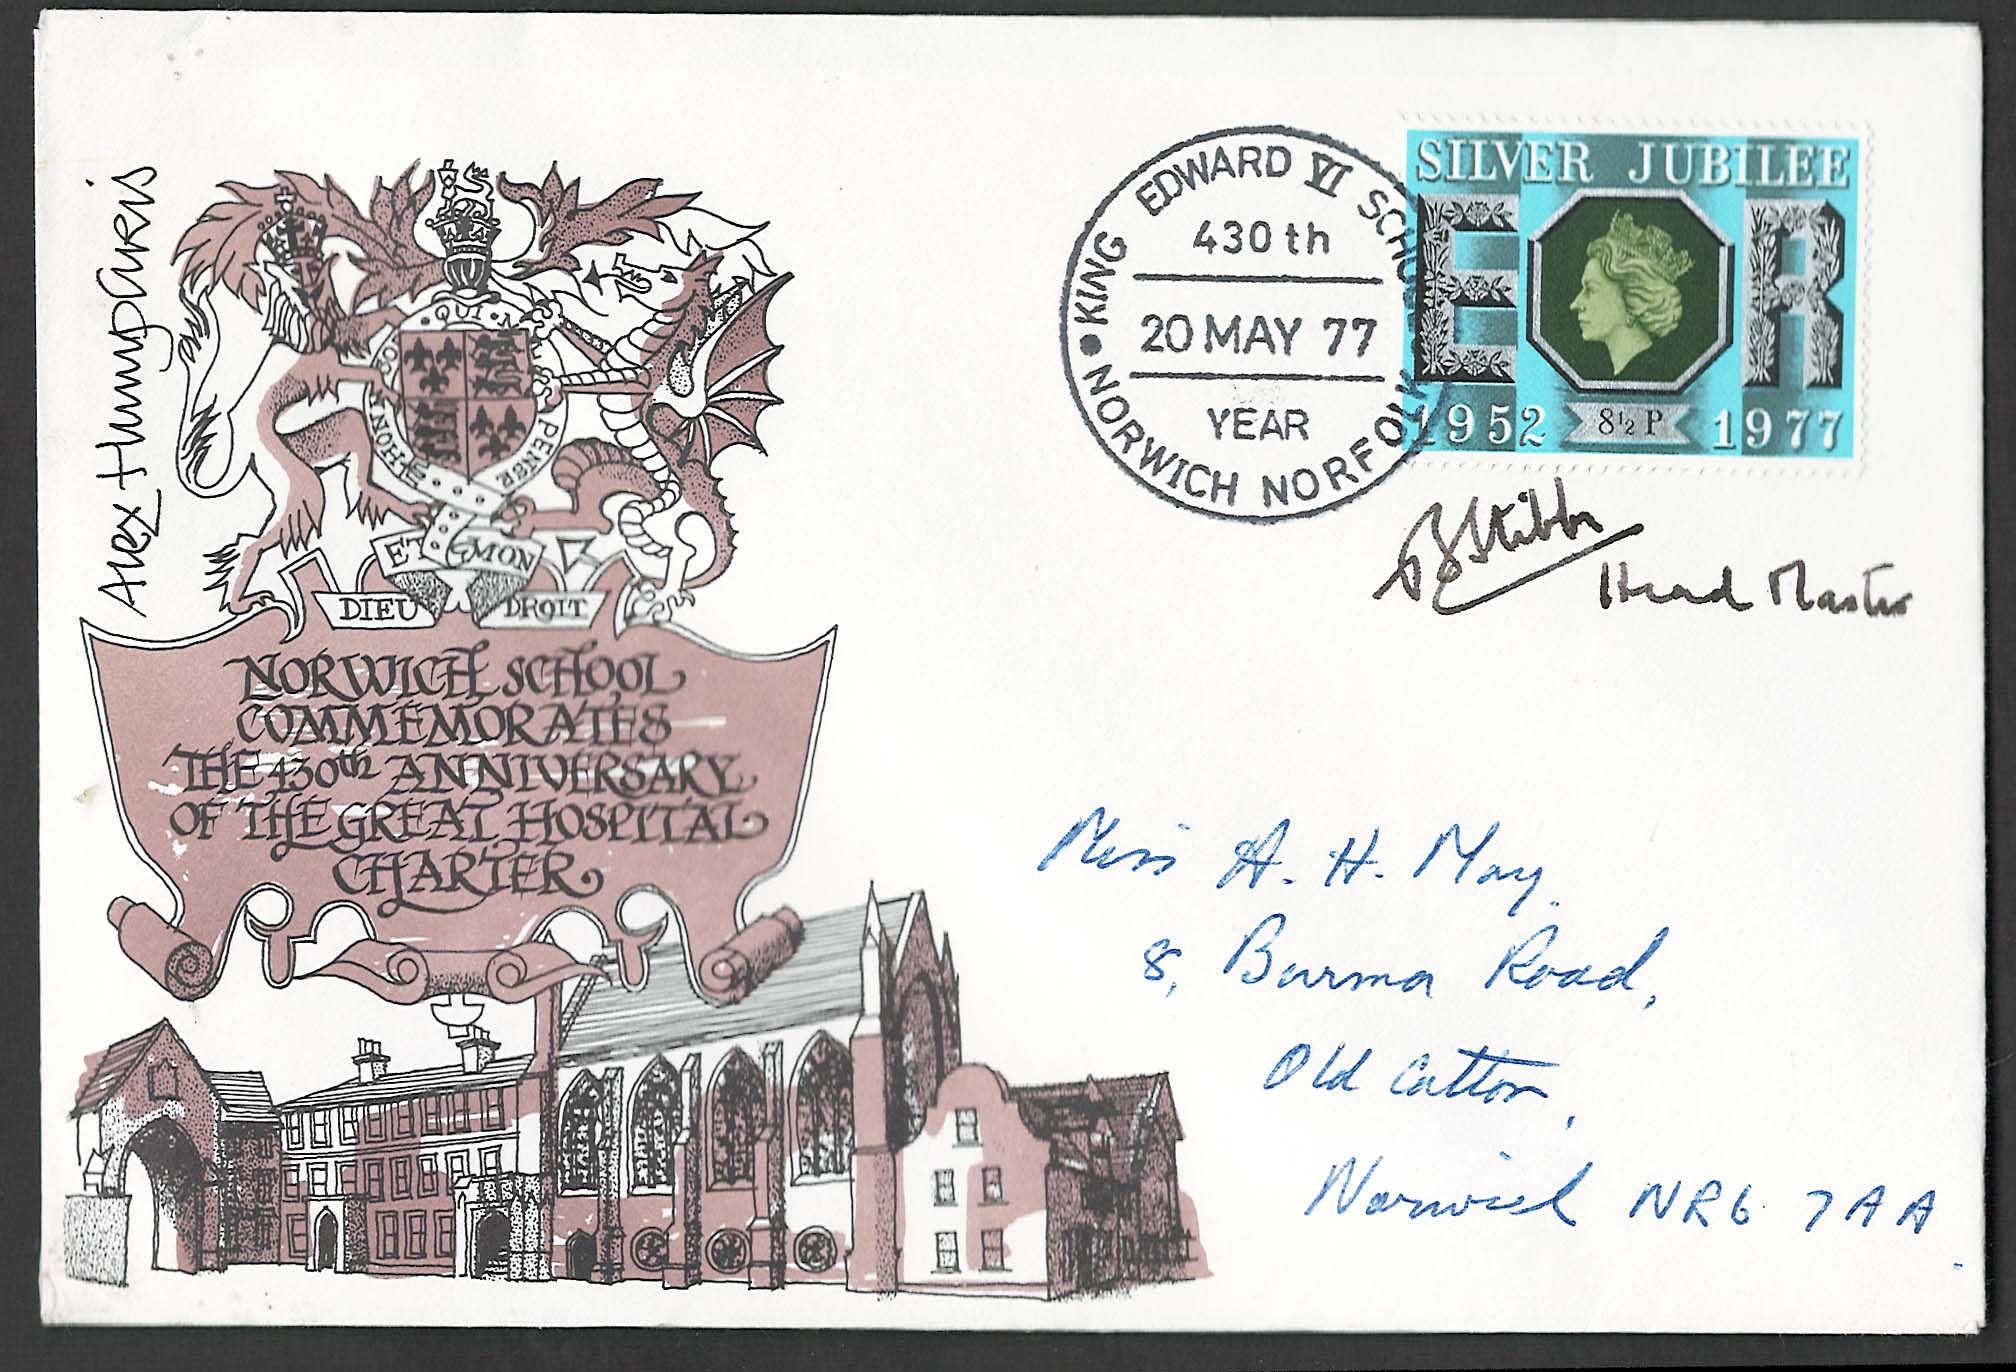 Alex Humphris
QUI
HONI
PENSE
ET MON
DIEU DROIT
NORWICH SCHOOL
COMMEMORATES
THE 430th ANNIVERSARY
OF THE GREAT HOSPITAL
CHARTER
KING EDWARD VI SCHOOL
430th
20 MAY 77
YEAR
NORWICH NORFOLK
SILVER JUBILEE
E R
1952 8½P 1977
Stibbs
Head Master
Miss A. H. May.
8, Burma Road,
Old Catton,
Norwich NR6 7AA.